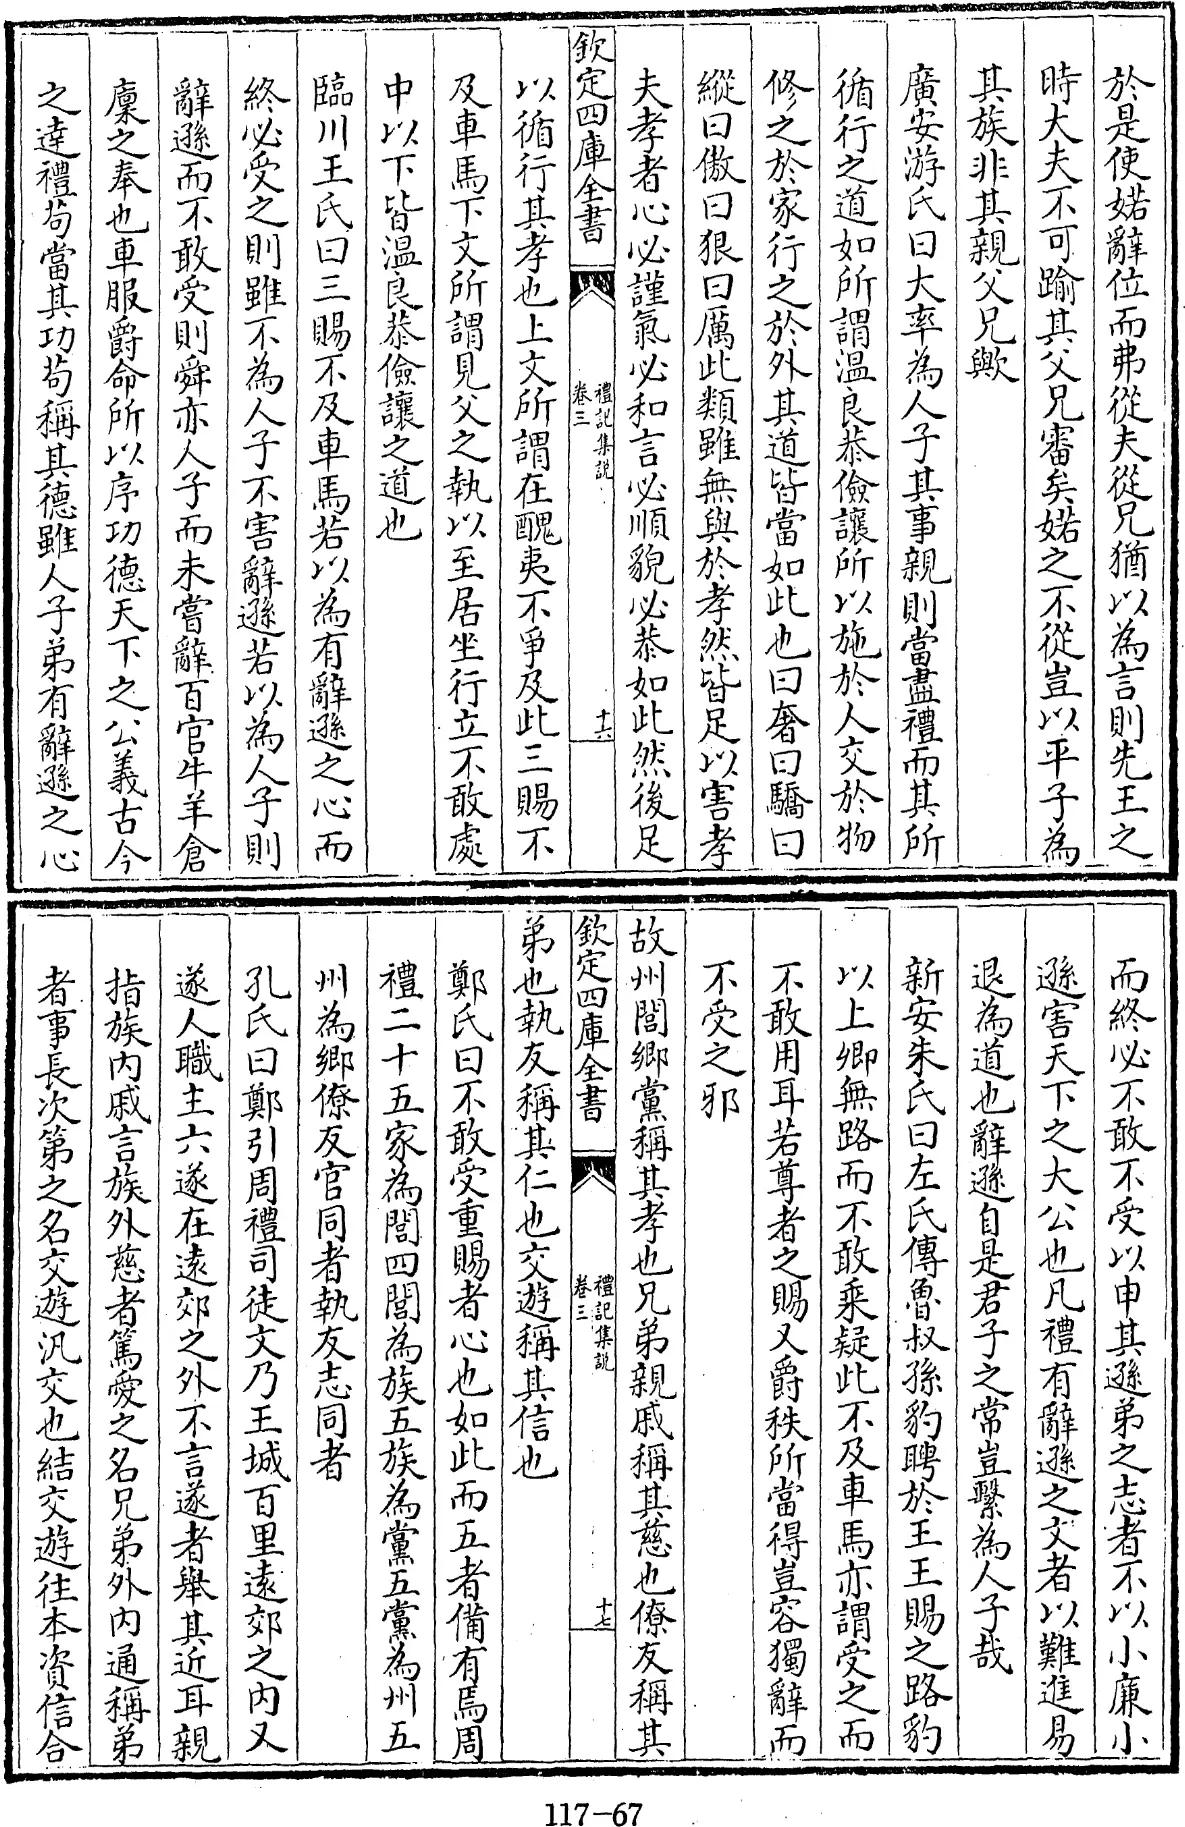 於是使婼辭位而弗從夫從兄猶以為言則先王之
時大夫不可踰其父兄審矣婼之不從豈以平子為
其族非其親父兄歟
廣安游氏曰大率為人子其事親則當盡禮而其所
循行之道如所謂温良恭儉讓所以施於人交於物
修之於家行之於外其道皆當如此也曰奢曰驕曰
縱曰傲曰狠曰厲此類雖無與於孝然皆足以害孝
夫孝者心必謹氣必和言必順貌必恭如此然後足
欽定四庫全書
禮記集説
卷三
十六
以循行其孝也上文所謂在醜夷不爭及此三賜不
及車馬下文所謂見父之執以至居坐行立不敢處
中以下皆温良恭儉讓之道也
臨川王氏曰三賜不及車馬若以為有辭遜之心而
終必受之則雖不為人子不害辭遜若以為人子則
辭遜而不敢受則舜亦人子而未嘗辭百官牛羊倉
廩之奉也車服爵命所以序功德天下之公義古今
之達禮苟當其功苟稱其德雖人子弟有辭遜之心
而終必不敢不受以申其遜弟之志者不以小廉小
遜害天下之大公也凡禮有辭遜之文者以難進易
退為道也辭遜自是君子之常豈繫為人子哉
新安朱氏曰左氏傳魯叔孫豹聘於王王賜之路豹
以上卿無路而不敢乘疑此不及車馬亦謂受之而
不敢用耳若尊者之賜又爵秩所當得豈容獨辭而
不受之邪
故州閭鄉黨稱其孝也兄弟親戚稱其慈也僚友稱其
欽定四庫全書
禮記集説
卷三
十七
弟也執友稱其仁也交遊稱其信也
鄭氏曰不敢受重賜者心也如此而五者備有焉周
禮二十五家為閭四閭為族五族為黨五黨為州五
州為鄉僚友官同者執友志同者
孔氏曰鄭引周禮司徒文乃王城百里遠郊之内又
遂人職主六遂在遠郊之外不言遂者舉其近耳親
指族内戚言族外慈者篤愛之名兄弟外内通稱弟
者事長次第之名交遊汎交也結交遊往本資信合
117-67